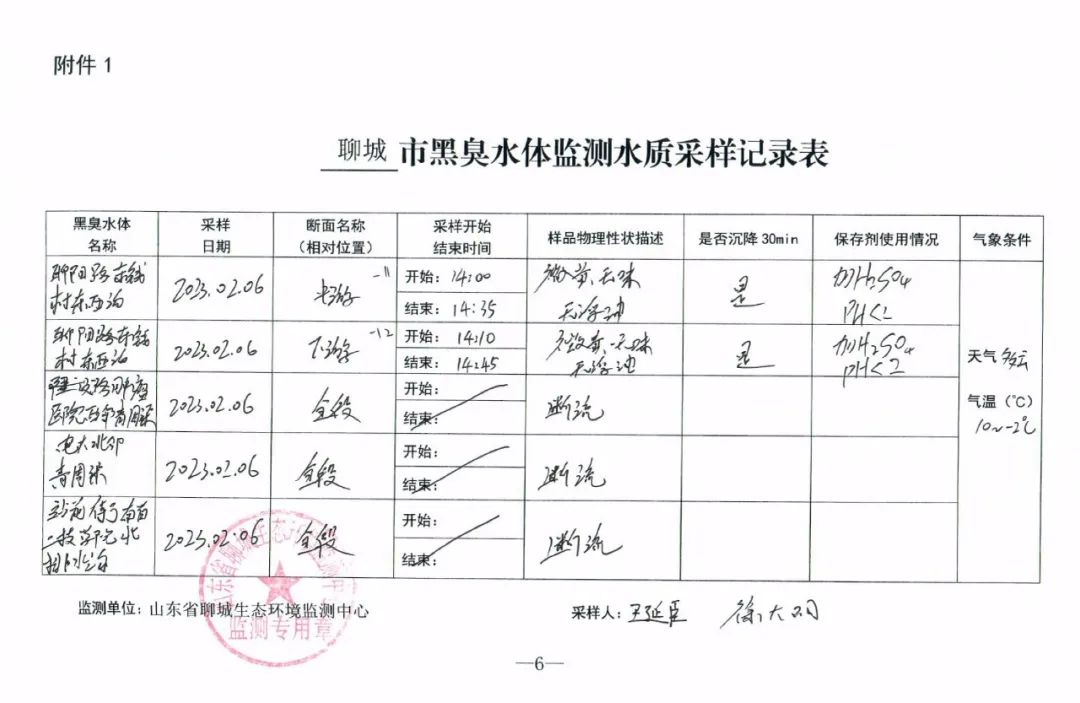 附件 1
聊城 市黑臭水体监测水质采样记录表
黑臭水体名称 采样日期 断面名称（相对位置） 采样开始结束时间 样品物理性状描述 是否沉降 30min 保存剂使用情况 气象条件
聊阳路 2023.02.06 -11 开始: 14:00 无味 是 加H₂SO₄
村东西沟 上游 结束: 14:35 无浮油 PH<2
聊阳路 2023.02.06 下游 -12 开始: 14:10 无味 是 加H₂SO₄
村东西沟 结束: 14:45 无浮油 PH<2
天气 多云
气温（℃）
10~-2℃
医院 2023.02.06 全段 开始: 结束: 断流
电大北邻 2023.02.06 全段 开始: 结束: 断流
站前街 2023.02.06 全段 开始: 结束: 断流
监测单位: 山东省聊城生态环境监测中心 采样人: 王延臣 徐大
山东省聊城生态
监测专用章
—6—